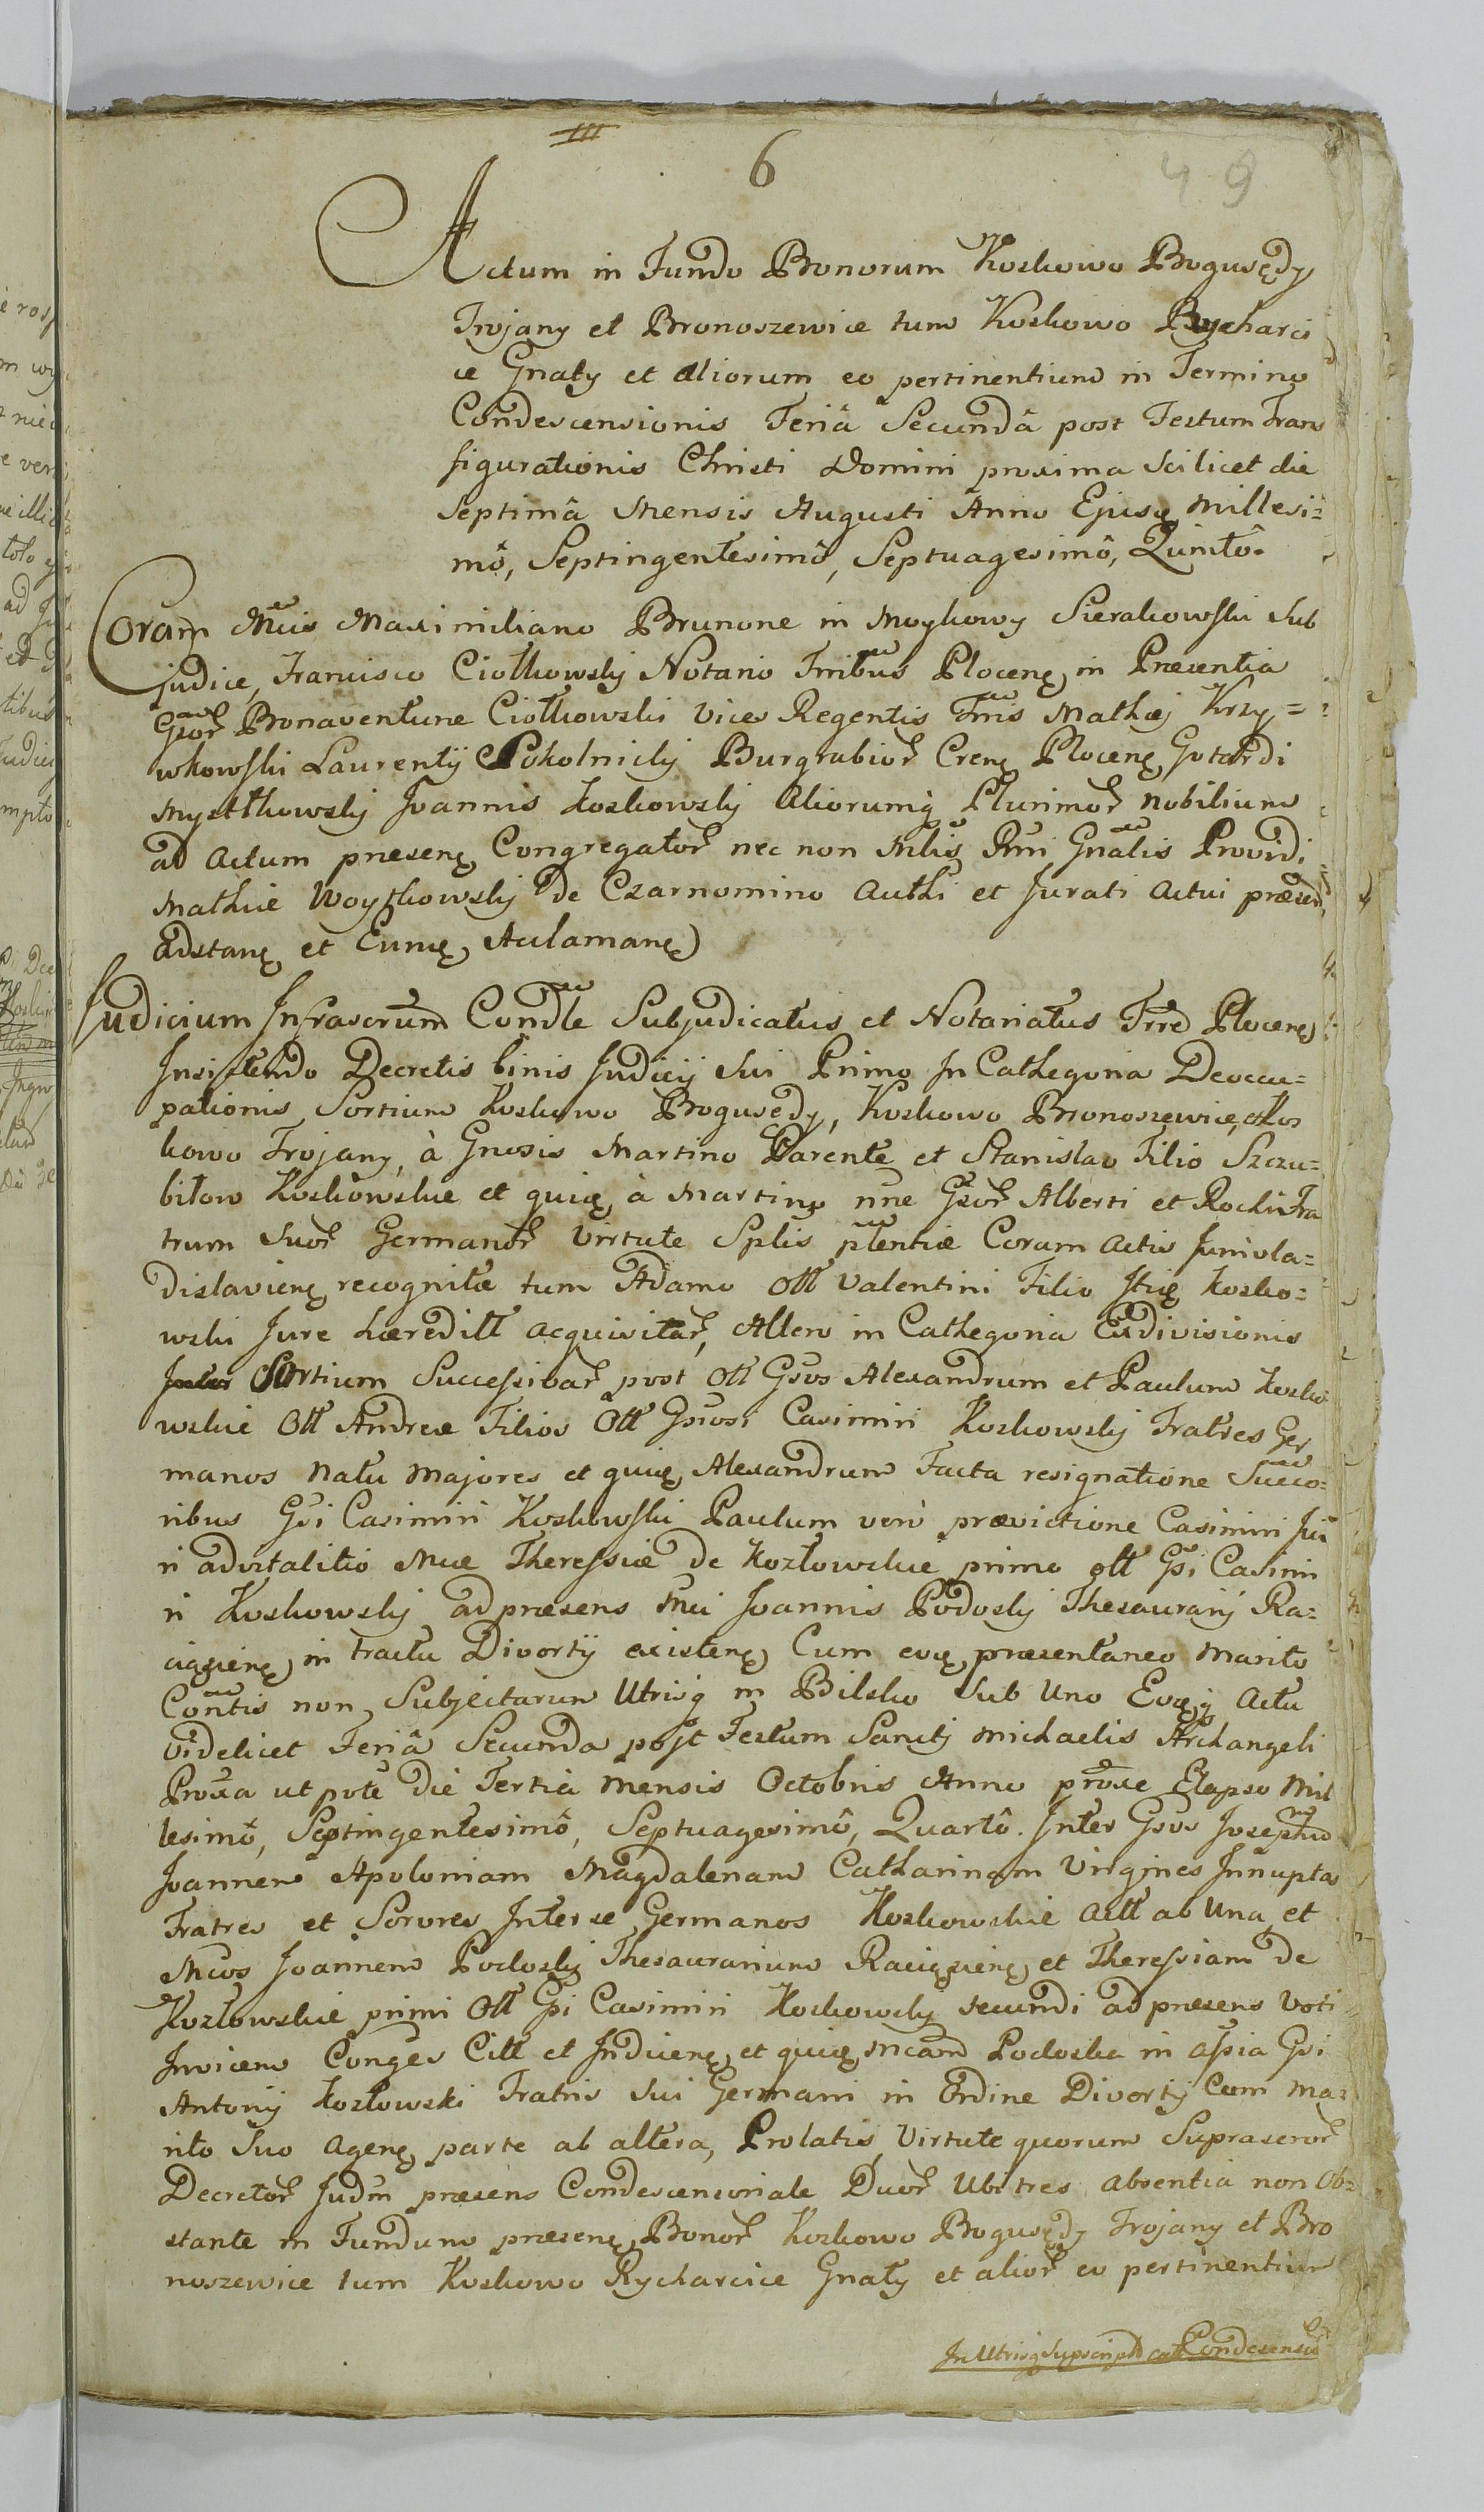 III
6
49
Actum in Fundo Bonorum Koskowo Bogusędy
Trojany et Bronoszewice tum Koskowo Rycharci
ce Gnaty et aliorum eo pertinentium in Termino
Condescensionis Feriâ Secundâ post Festum Trans
figurationis Christi Domini proxima scilicet die
Septimâ Mensis Augusti Anno Ejusę Millesi=
mô, Septingentesimô, Septuagesimô, Quintô.
Coram Mcis Maximiliano Brunone in Moykowy Sierakowski Sub
judice, Francisco Ciołkowsky Notario Trribus Plocenę in Præsentia
Gsor Bonaventuræ Ciołkowski Vices Regentis Trris Mathæj Krzy=
wkowski Laurentÿ Pokolnicky Burgrabior Crenę Plocenę Gotardi
Mystkowsky Joannis Koskowsky Aliorumq Plurimor Nobilium
ad Actum præsenę Congregator nec non Mlis Rni Gnalis Providi
Mathiæ Woytkowsky de Czarnomino Authi et Jurati Actui præsend
adstanę et Eumę Aclamanę
Judicium Infrascrum Condle Subjudicatus et Notariatus Trræ Plocenę
Insistendo Decretis binis Judicÿ Sui Primo In Cathegoria Deoccu=
pationis Sortium Koskowo Bogusędy, Koskowo Bronoszewice, Kos
kowo Trojany, à Gnosis Martino Parente et Stanislao Filio Szczu=
bitow Koskowskie et quię à Martino nne Gsor Alberti et Rochi Fra
trum Suor Germanor Virtute Splis plentiæ Coram Actis Juniola=
dislavienę recognitæ tum Adamo Ott Valentini Filio Itię Kosko=
wski Jure hæreditt acquisitar, Altero in Cathegoria Exdivisionis
Sortium Successivar post Ott Gsos Alexandrum et Paulum Kosko
wskie Ott Andreæ Filios Ott Gsosi Casimiri Koskowsky Fratres Ger
manos Natu Majores et quię Alexandrum Facta resignatione Succo=
ribus Gsi Casimiri Koskowski Paulum verò prævictione Casimiri
ri advitalitio Mcæ Theressiæ de Kozłowskie primo ott Gsi Casimi
ri Koskowsky ad præsens Mci Joannis Podosky Thesaurarÿ Ra=
ciązienę in tractu Divortÿ existenę Cum eoę præsentaneo Marito
Contis non Subjectarum Utrisq in Bilsko Sub Uno Eoęq Actu
videlicet Feriâ Secunda post Festum Sancti Michaelis Archangeli
Proxa ut pote die Tertia Mensis Octobris Anno proxe Elapso Mil
lesimô, Septingentesimô, Septuagesimô, Quartô. Inter Gsos Josephum
Joannem Apoloniam Magdalenam Catharinam Virgines Innuptas
Fratres et Sorores Inter se Germanos Koskowskie Actt ab Una et
Mcos Joannem Podosky Thesaurarium Raciązienę et Theressiam de
Kozłowskie primi Ott Gsi Casimiri Koskowsky secundi ad præsens Voti
Invicem Conges Citt et Inducenę et quię Mcam Podoska in assia Gsi
Antonij Kozłowski Fratris Sui Germani in Ordine Divortÿ Cum Ma=
rito Suo Agenę parte ab altera, Prolatis Virtute quorum Suprascror
Decretor Judm præsens Condescensoriale Duor Ubi tres absentia non Ob=
stante in Fundum præsenę Bonor Koskowo Bogusędy Trojany et Bro
noszewice tum Koskowo Rycharcice Gnaty et alior eo pertinentium
In Utrisq